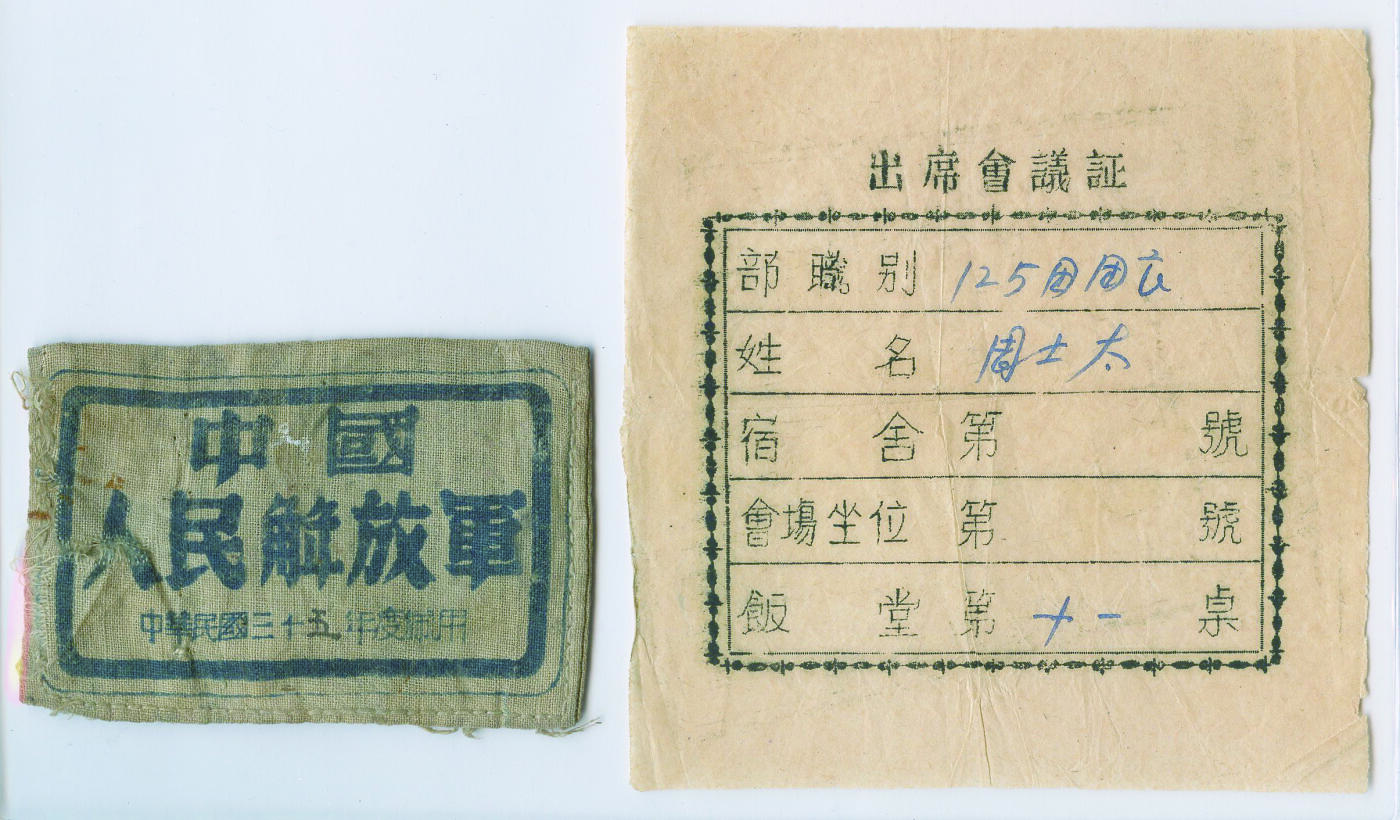 中國
人民解放軍
中華民國三十五年度佩用
出席會議証
部職别 125团团长
姓名 周士太
宿舍第 號
會場坐位第 號
飯堂第 十一 桌